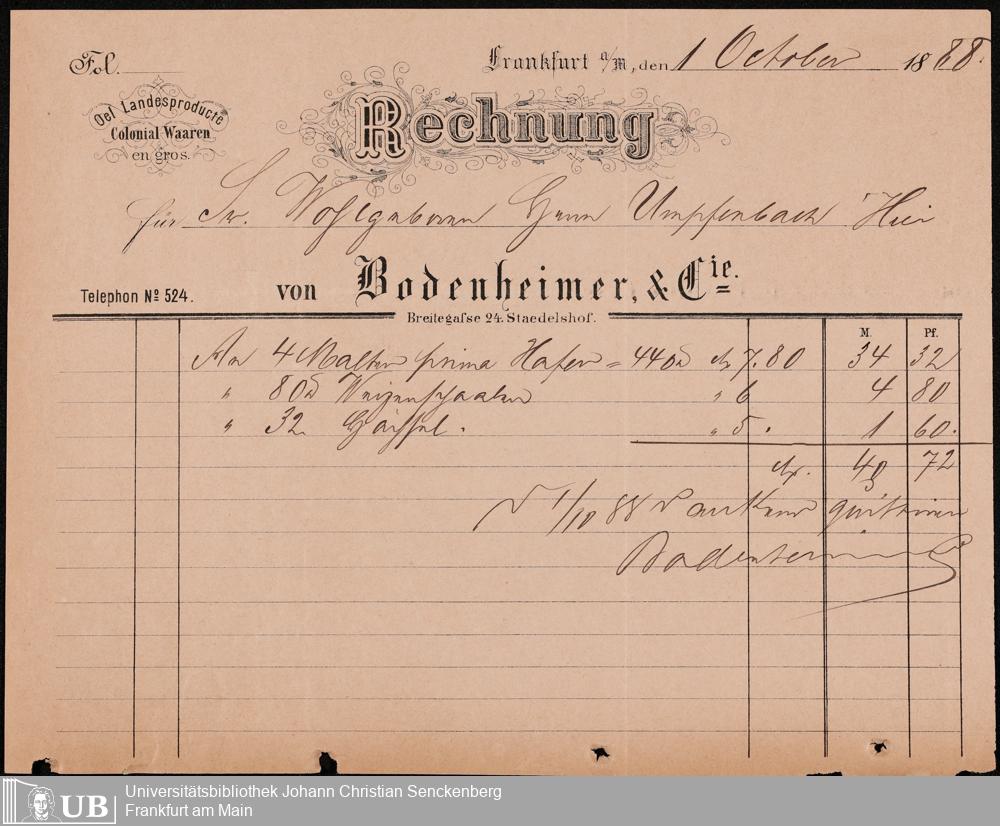 Fol.
Frankfurt a/M, den 1 October 1888.
Oel Landesproducte
Colonial Waaren
en gros.
Rechnung
für Sr. Wohlgeboren Herrn Umpfenbach Hier
Telephon No 524. von Bodenheimer, & Cie.
Breitegasse 24. Staedelshof.
M. Pf.
An 4 Malter prima Hafer = 440 M 7.80 34 32
" 80 Weizenschaalen " 6 4 80
" 32 " 5. 1 60.
M. 40 72
1/10 88 dankend quittirend
Bodenheimer
UB
Universitätsbibliothek Johann Christian Senckenberg
Frankfurt am Main